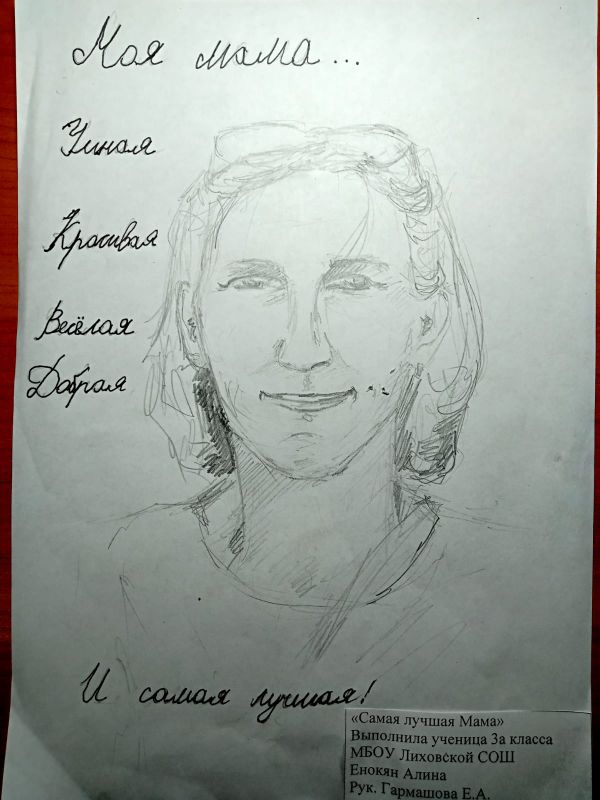 Моя мама...
Умная
Красивая
Весёлая
Добрая
И самая лучшая!
«Самая лучшая Мама»
Выполнила ученица 3а класса
МБОУ Лиховской СОШ
Енокян Алина
Рук. Гармашова Е.А.